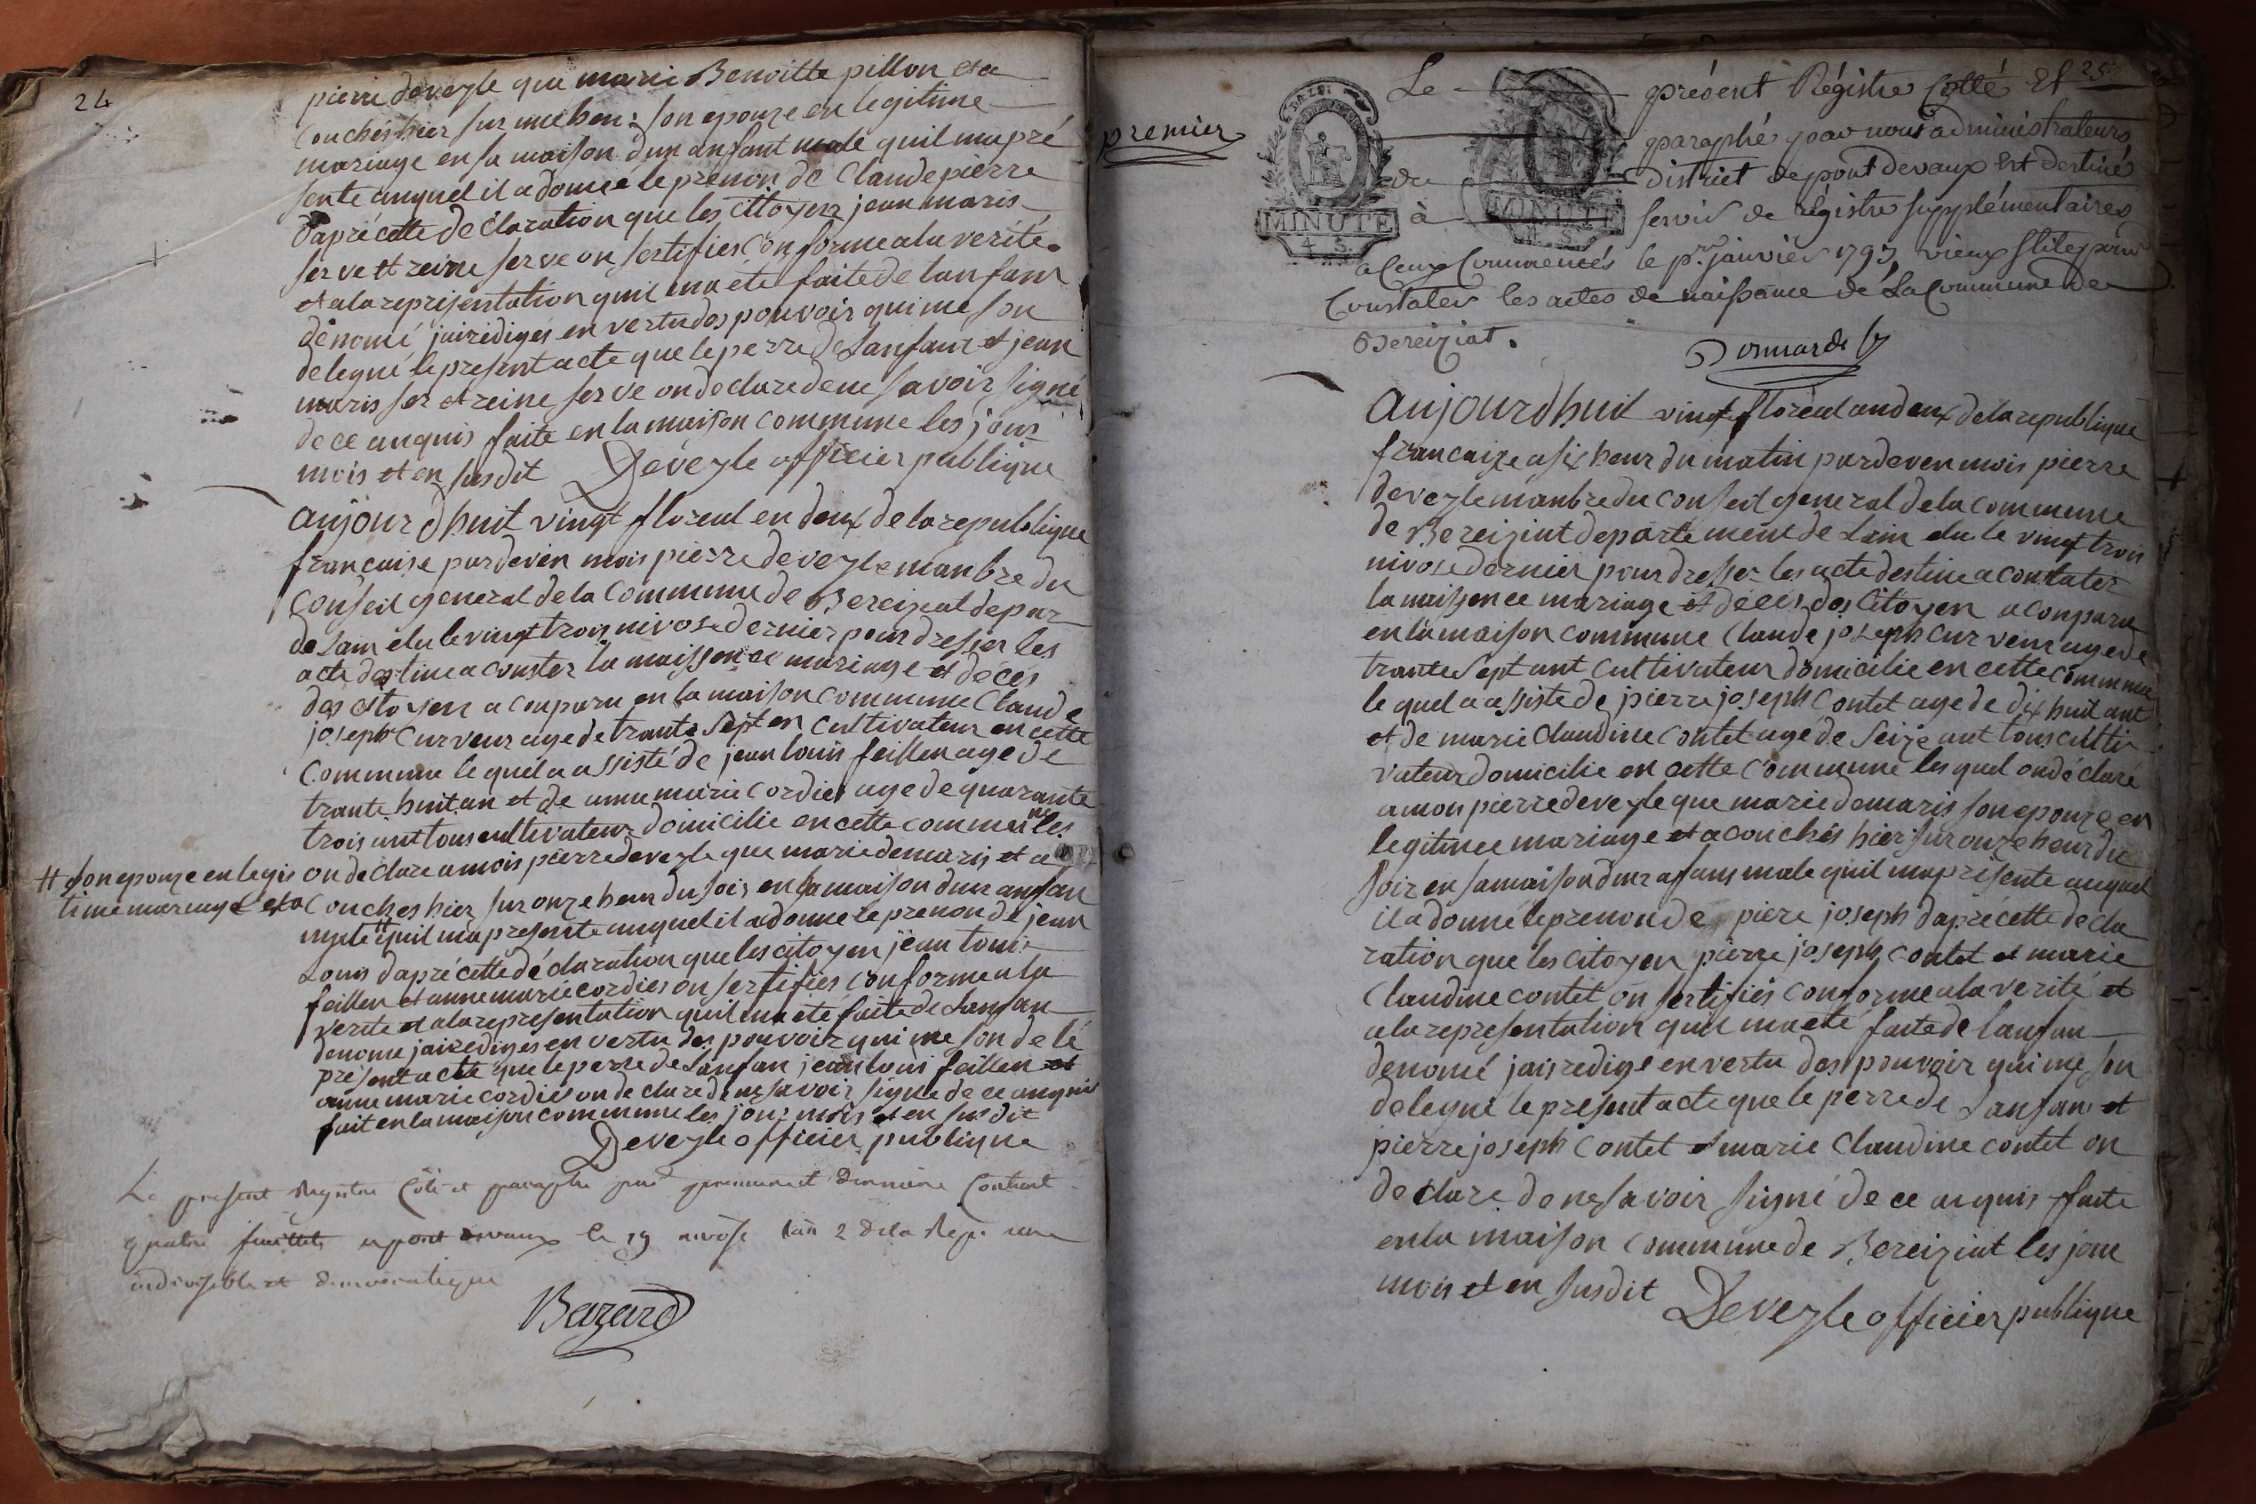 24
pierre deveyle que marie Benoitte pillon et a
couchés hier sur une heu: son epouze en legitime
mariage en sa maison dun anfant male quil mapré
sente auquel il a donné le prenon de Claude pierre
daprécette déclaration que les citoyens jean maris
serve et reine serve on sertifies conforme a la verité
et a la représentation quil ma été faite de lanfant
dénomé jairédigés en vertu des pouvoir qui me son
delegué le present acte que le perre de Lanfant et jean
maris ser et reine serve on declare de ne savoir signé
de ce anquis faite en la maison commune les jour
mois et en susdit Deveyle officier publique
aujourdhuit vingt floreal en deux de la republique
francaise pardeven mois pierre deveyle manbre du
Conseil general de la Commune de Bereiziat depar
de Lain elu le vingt trois nivose dernier pour dresser les
acte destine a conster la naissence mariage et décés
des citoyen a conparu en la maison commune Claude
joseph Curveur age de trante sept en Cultivateur en cette
Commune le quel a assisté de jean louis feillen age de
trante huit an et de anne marie Cordier age de quarante
trois ant tous cultivateur domicilie en cette commune les
on declare a mois pierre deveyle que marie demaris et a
# son epouze en legi
time mariage et a
Couches hier sur onze heur du soir en sa maison dun anfan
male quil ma presente auquel il a donne le prenon de jean
Louis daprécette déclaration que les citoyen jean louis
feillen et anne marie cordier on sertifiés conforme a la
verite et a la representation quil ma été faite de Lanfan
denome jairediges en vertu des pouvoir qui me son delé
présent acte que le perre de Lanfan jean louis feillen et
anne marie cordier on declare de ne savoir signe de ce anquis
fait en la maison commune les jour mois et en susdit
Deveyle officier publique
Le present Registre Côté et paraphé par premiere et derniere Contient
quatre feuillets a pont devaux le 19 nivose lan 2 de la Rep. une
indivisible et democratique
Bazard
25
premier
Le présent Régistre Cotté Et
paraphé par nous administrateurs
du district de pont devaux Est destiné
à servir de régistre supplémentaires
MINUTE
4 S.
MINUTE
a Ceux Commencés le p.er janvier 1793 vieux stile pour
Constater les actes de naissance de La Commune de
Bereiziat.
aujourdhuit vingt floréal an deux de la republique
francaize a six heur du matin pardeven mois pierre
deveyle manbre du conseil general de la commune
de Bereiziat departement de Lain elu le vingt trois
nivose dernier pour dresser les acte destine a constater
la naissence mariage et décés des Citoyen a conparu
en la maison commune Claude joseph Curveur age de
trante sept ant cultivateur domicilie en cette commune
le quel a assiste de pierre joseph Contet age de dix huit ant
et de marie Claudine Contet agé de seize ant tous culti
vateur domicilie en cette Commune les quel on déclaré
a mon pierre deveyle que marie demaris son epouze en
legitime mariage et a couchés hier sur onze heur du
soir en sa maison dun anfans male quil ma présente auquel
il a donné le prenon de piere joseph daprécette décla
ration que les citoyen pierre joseph Contet et marie
Claudine contet on sertifiés conforme a la verité et
a la representation quil ma eté faite de lanfan
denomé jais redigé en vertu des pouvoir qui me son
delegué le present acte que le perre de Lanfan et
pierre joseph Contet et marie Claudine contet on
declare de ne savoir signé de ce anquis faite
en la maison commune de Bereiziat les jour
mois et en susdit Deveyle officier publique